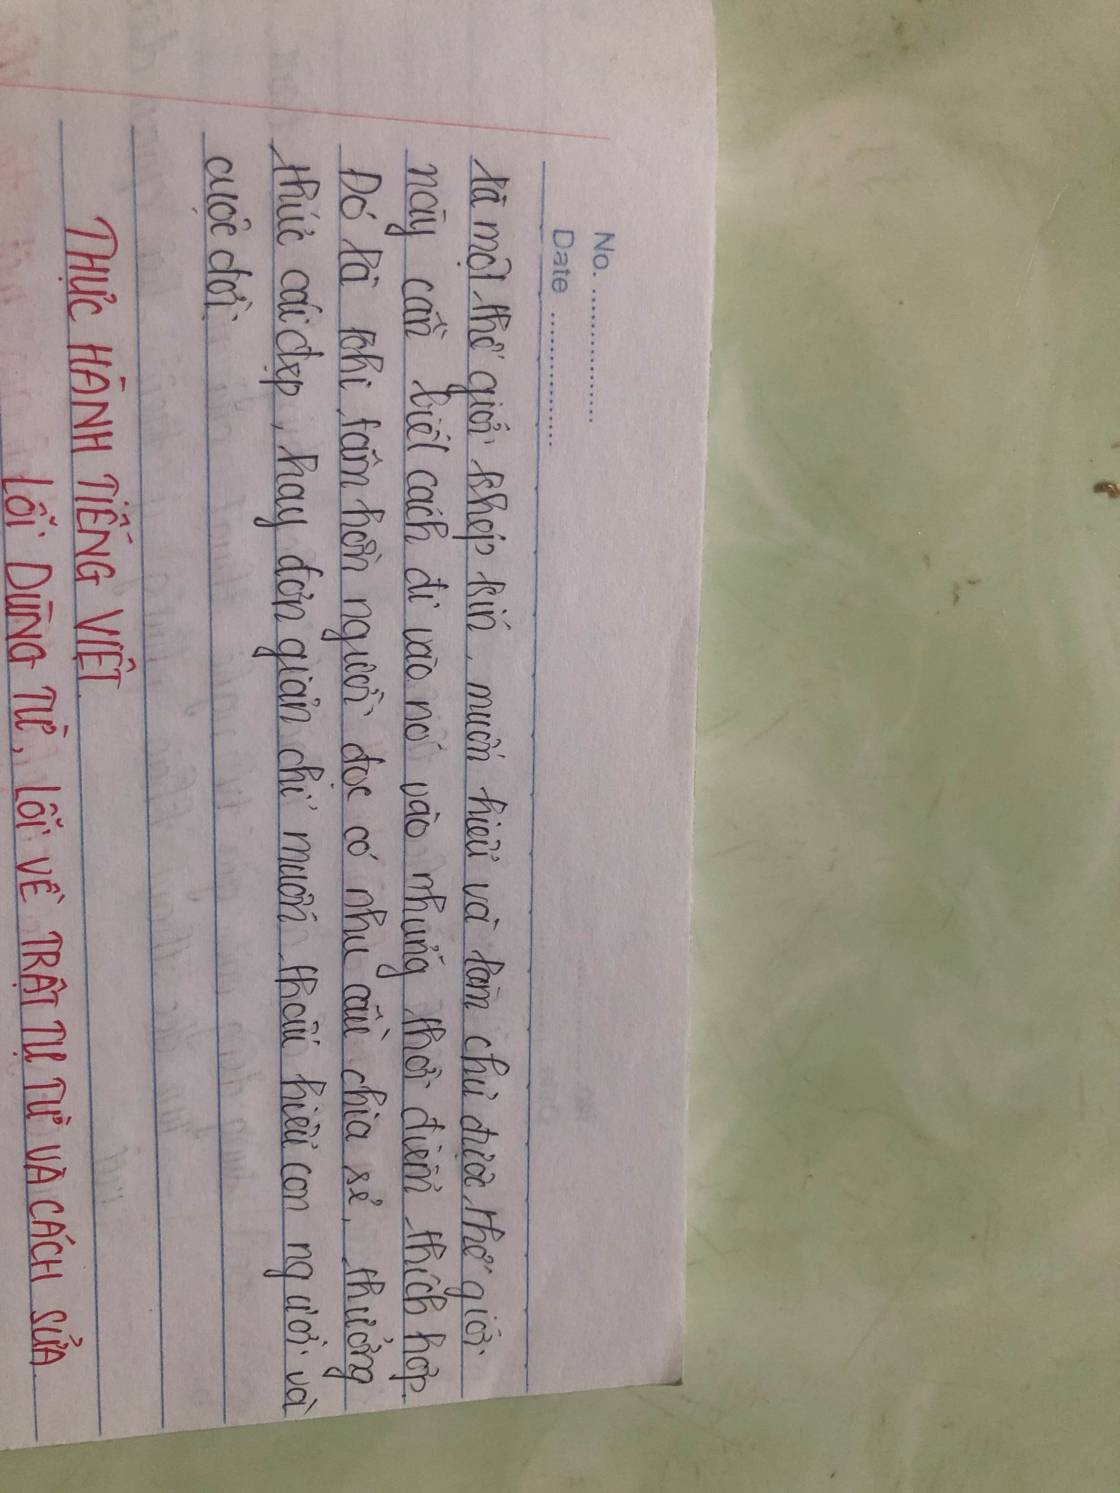 No. ....................
Date ....................
là một thế giới khép kín, muốn hiểu và làm chủ được thế giới
này cần biết cách đi vào nó vào những thời điểm thích hợp.
Đó là khi tâm hồn người đọc có nhu cầu chia sẻ, thưởng
thức cái đẹp, hay đơn giản chỉ muốn thấu hiểu con người và
cuộc đời.
THỰC HÀNH TIẾNG VIỆT
LỖI DÙNG TỪ, LỖI VỀ TRẬT TỰ TỪ VÀ CÁCH SỬA